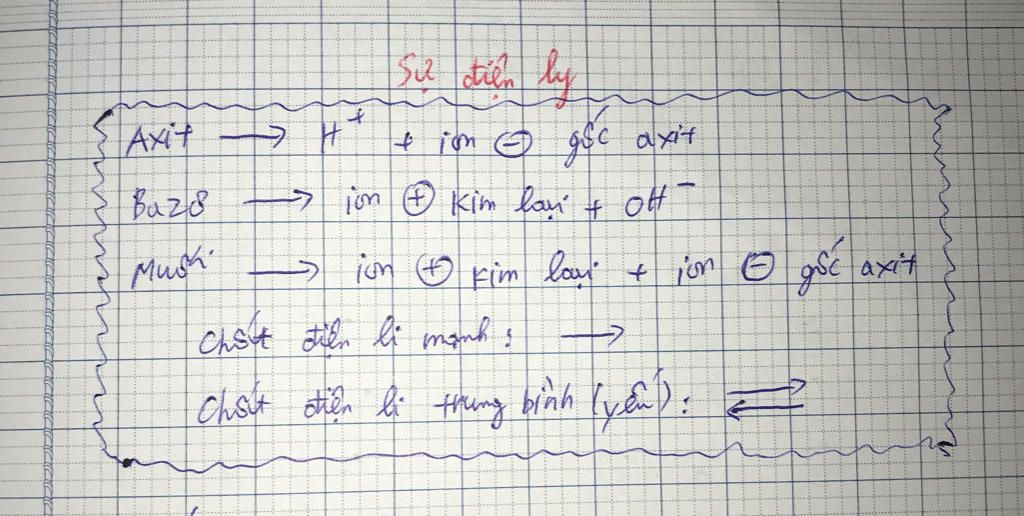 Sự điện ly
Axit → H⁺ + ion ⊖ gốc axit
Bazơ → ion ⊕ kim loại + OH⁻
Muối → ion ⊕ kim loại + ion ⊖ gốc axit
Chất điện li mạnh: →
Chất điện li trung bình (yếu): ⇄